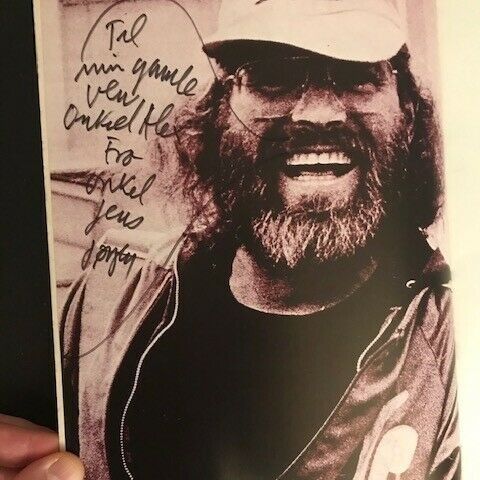 Til
min gamle
ven
Onkel
Fra
onkel
Jens